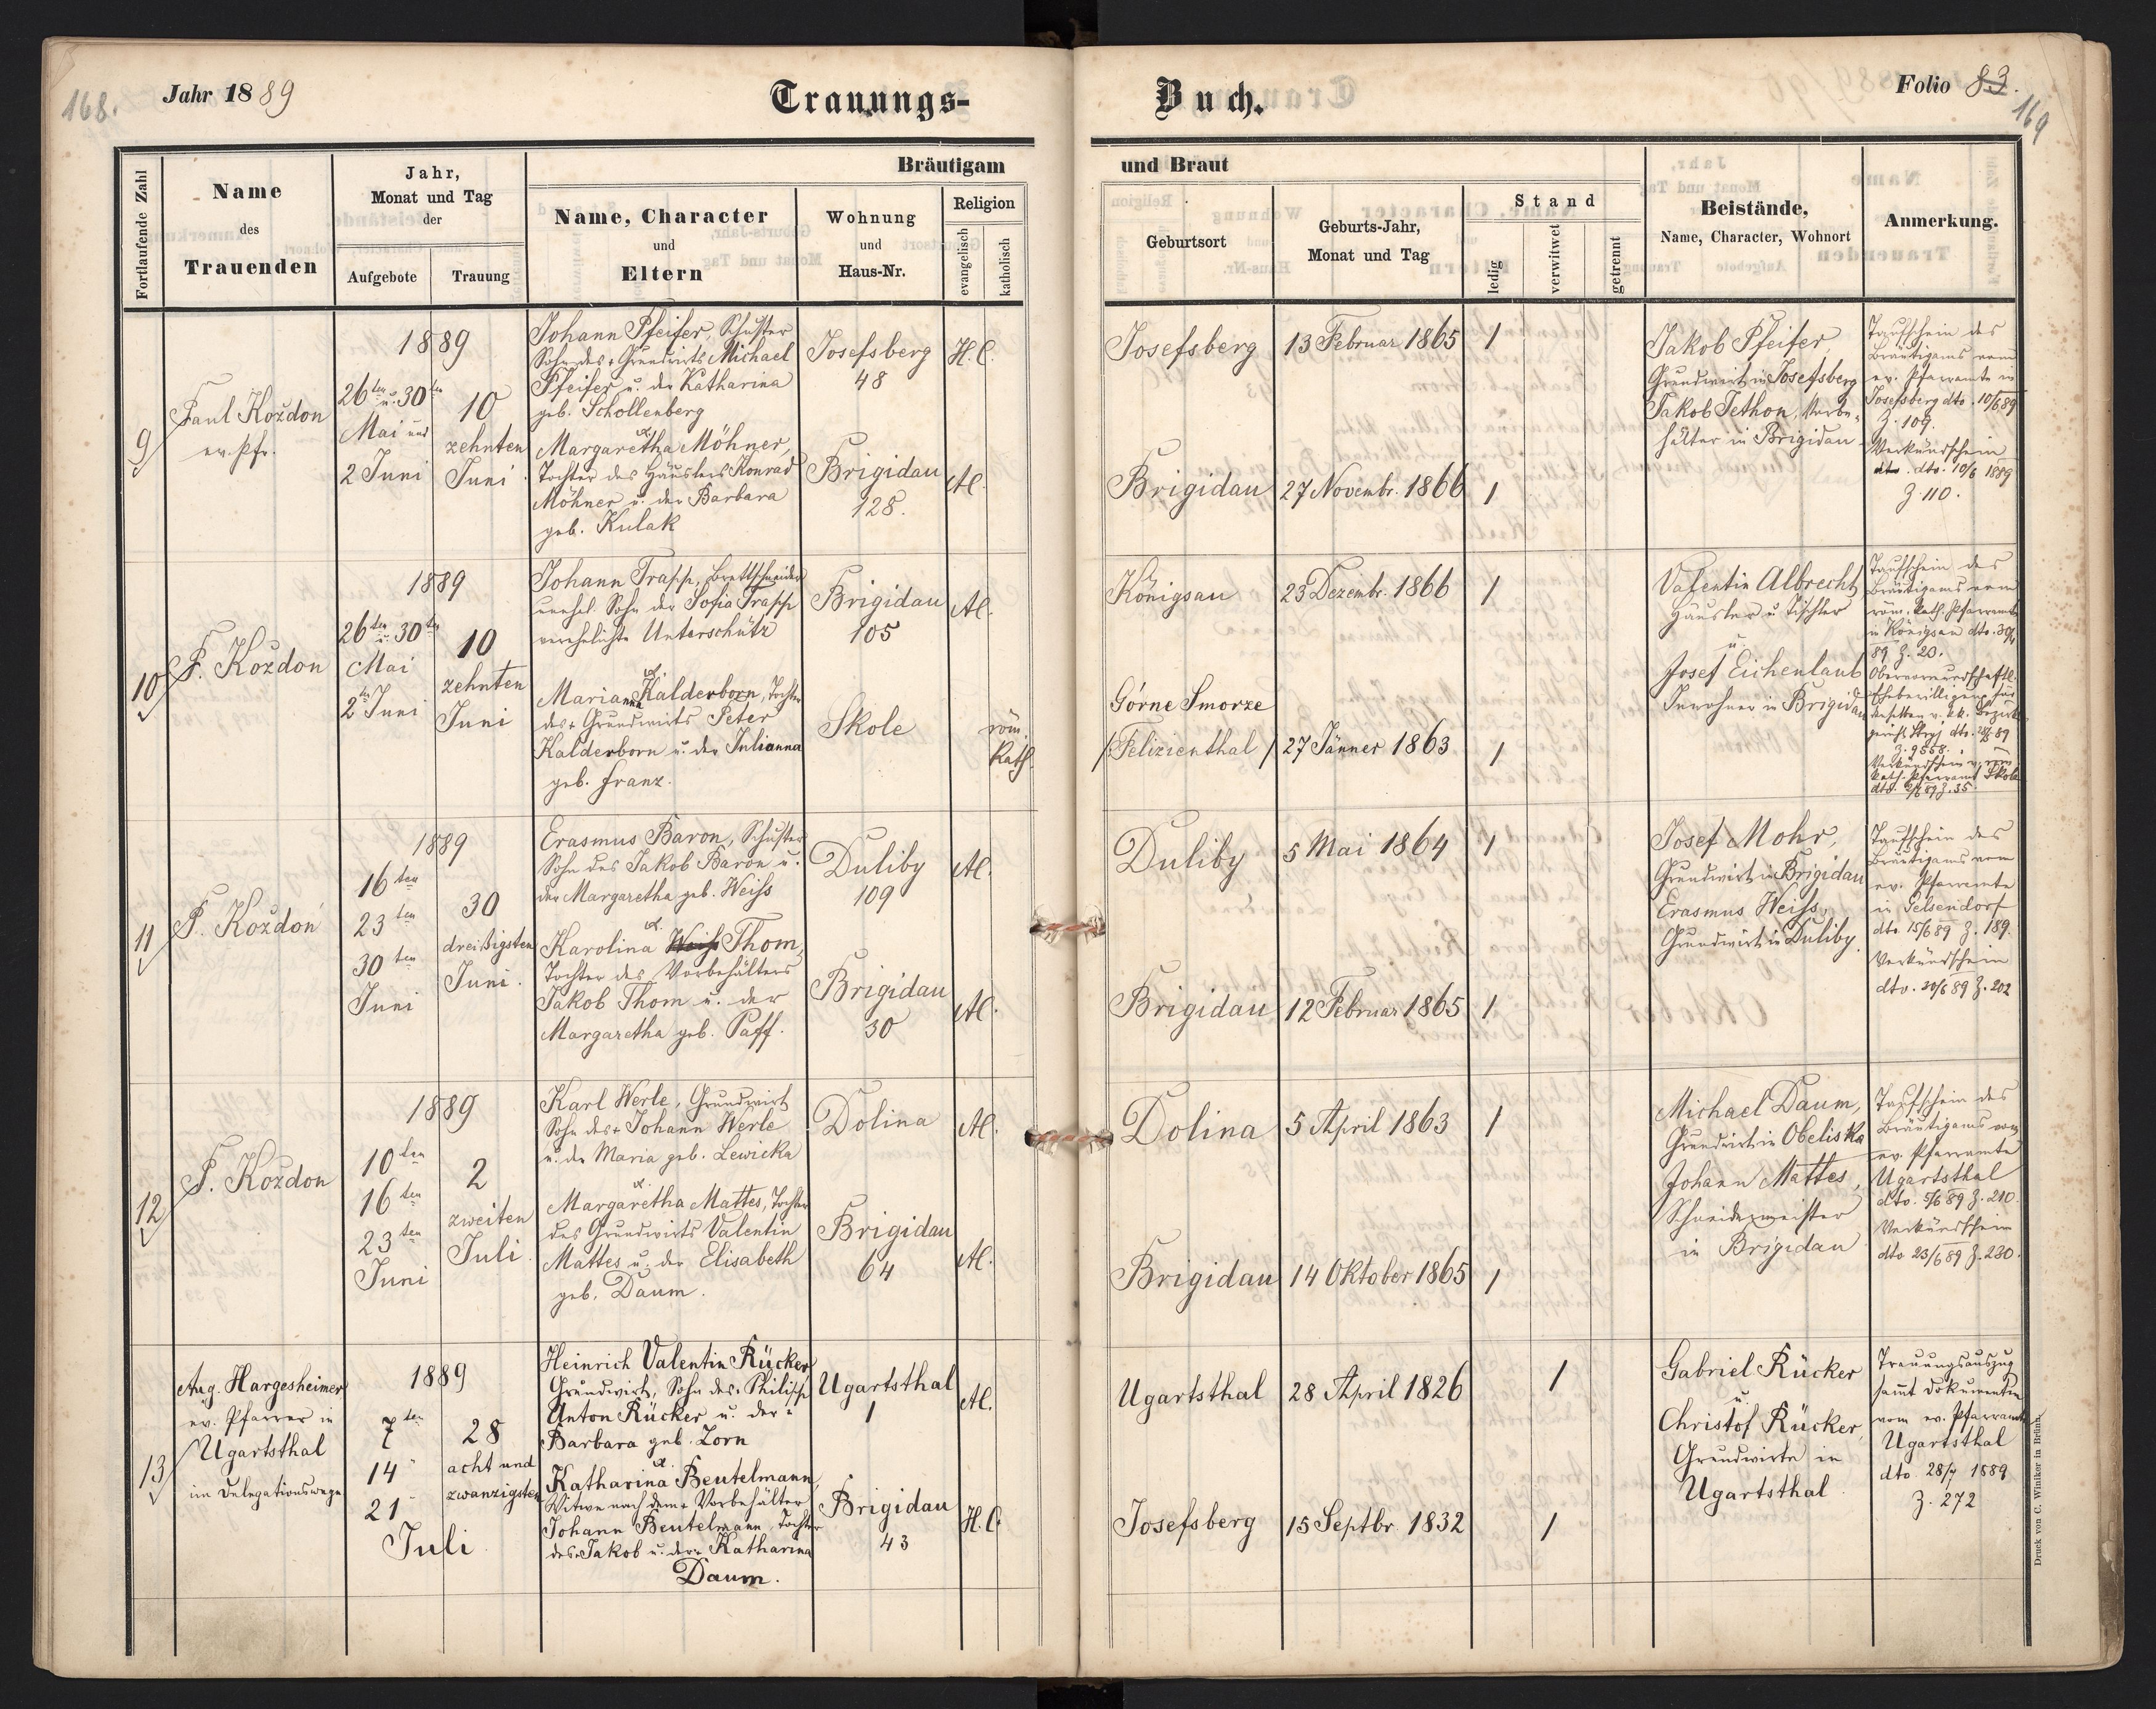 168.
Jahr 1889
Trauungs-
Buch.
Folio 83.
169
Fortlaufende Zahl
Name
des
Trauenden
Jahr,
Monat und Tag
der
Aufgebote
Trauung
Bräutigam
Name, Character
und
Eltern
Wohnung
und
Haus-Nr.
Religion
evangelisch
katholisch
und Braut
Geburtsort
Geburts-Jahr,
Monat und Tag
Stand
ledig
verwitwet
getrennt
Beistände,
Name, Character, Wohnort
Anmerkung.
9
Paul Koždon
ev. Pfr.
1889
26ten u. 30ten
Mai und
2 Juni
10
zehnten
Juni
Johann Pfeifer, Schuster
Sohn des + Grundwirts Michael
Pfeifer u. der Katharina
geb. Schollenberg
Josefsberg
48
H.C.
Josefsberg
13 Februar 1865
1
et.
Margaretha Möhner,
Tochter des Häuslers Konrad
Möhner u. der Barbara
geb. Kulak
Brigidau
128.
A.
Brigidau
27 Novembr. 1866
1
Jakob Pfeifer,
Grundwirt in Josefsberg
Jakob Jethon, Vorbe-
hälter in Brigidau
Taufschein des
Bräutigams vom
ev. Pfarramte in
Josefsberg dto. 10/6 89
Z. 109.
Verkündschein
dto. 10/6 1889
Z. 110.
10
P. Koždon
1889
26ten u. 30ten
Mai
2ten Juni
10
zehnten
Juni
Johann Trapp, Brettschneider
unehel. Sohn der Sofia Trapp
verehelichte Unterschütz
Brigidau
105
A.
Königsau
23 Dezembr. 1866
1
et.
Marianna Kalderborn, Tochter
des + Grundwirts Peter
Kalderborn u. der Julianna
geb. Franz.
Skole
röm.
Kath.
Górne Smorze
/Felizienthal/
27 Jänner 1863
1
Valentin Albrecht
Häusler u. Tischler
u.
Josef Eichenlaub
Inwohner in Brigidau
Taufschein des
Bräutigams vom
röm. kath. Pfarramte
in Königsau dto. 30/
89 Z. 20.
Obervormundschaftl.
Ehebewilligung für
denselben v. kk. Bezirks
gericht Stryj dto. 89
Z. 9558.
Verkündschein v. röm
kath. Pfarramt Skole
dto. 89 Z. 35.
11
P. Koždon
1889
16ten
23ten
30ten
Juni
30
dreißigsten
Juni.
Erasmus Baron, Schuster
Sohn des Jakob Baron u.
der Margaretha geb. Weihs
Duliby
109
A.
Duliby
5 Mai 1864
1
et.
Karolina Weihs Thom,
Tochter des Vorbehälters
Jakob Thom u. der
Margaretha geb. Paff.
Brigidau
30
A.
Brigidau
12 Februar 1865
1
Josef Mohr,
Grundwirt in Brigidau
Erasmus Weihs,
Grundwirt in Duliby.
Taufschein des
Bräutigams vom
ev. Pfarramte
in Gelsendorf
dto. 15/6 89 Z. 189.
Verkündschein
dto. 30/6 89 Z. 202
12
P. Koždon
1889
10ten
16ten
23ten
Juni
2
zweiten
Juli.
Karl Werle, Grundwirt
Sohn des + Johann Werle
u. der Maria geb. Lewicka
Dolina
A.
Dolina
5 April 1863
1
et.
Margaretha Mattes, Tochter
des Grundwirts Valentin
Mattes u. der Elisabeth
geb. Daum.
Brigidau
64
A.
Brigidau
14 Oktober 1865
1
Michael Daum,
Grundwirt in Obeliska
Johann Mattes,
Schneidermeister
in Brigidau
Taufschein des
Bräutigams vom
ev. Pfarramte
Ugartsthal
dto. 5/6 89 Z. 210.
Verkündschein
dto 23/6 89 Z. 230.
13
Aug. Hargesheimer
ev. Pfarrer in
Ugartsthal
im Delegationswege
1889
7ten
14"
21"
Juli
28
acht und
zwanzigsten
Heinrich Valentin Rücker
Grundwirt, Sohn des + Philipp
Anton Rücker u. der +
Barbara geb. Zorn
Ugartsthal
1
A.
Ugartsthal
28 April 1826
1
et.
Katharina Beutelmann,
Witwe nach dem + Vorbehälter
Johann Beutelmann, Tochter
des + Jakob u. der + Katharina
Daum.
Brigidau
43
H.C.
Josefsberg
15 Septbr. 1832
1
Gabriel Rücker
u.
Christof Rücker,
Grundwirte in
Ugartsthal.
Trauungsauszug
sammt Dokumenten
vom ev. Pfarramte
Ugartsthal
dto 28/7 1889
Z. 272
Druck von C. Winiker in Brünn.